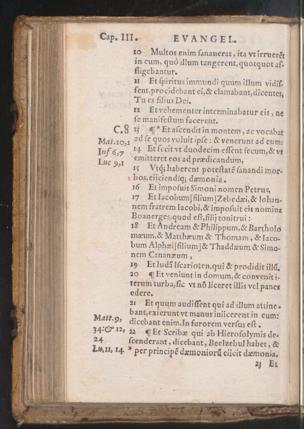 Cap. III. EVANGEL.
10 Multos enim sanauerat, ita vt irruerēt
in eum, quò illum tangerent, quotquot af-
fligebantur.
11 Et spiritus immundi quum illum vidis-
sent, procidebant ei, & clamabant, dicentes,
Tu es filius Dei.
12 Et vehementer interminabatur eis, ne
se manifestum facerent.
C.8 13 ¶ * Et ascendit in montem, ac vocabat
Mat.10,1 ad se quos voluit ipse: & venerunt ad eum:
Inf 6,7 14 Et fecit vt duodecim essent secum, & vt
Luc 9,1 emitteret eos ad prædicandum,
15 Vtq; haberent potestatē sanandi mor-
bos, eiiciendiq; dæmonia.
16 Et imposuit Simoni nomen Petrus,
17 Et Iacobum [filium] Zebedæi, & Iohan-
nem fratrem Iacobi, & imposuit eis nomina
Boanerges, quod est, filij tonitrui:
18 Et Andream & Philippum, & Bartholo
mæum, & Matthæum & Thomam, & Iaco-
bum Alphæi [filium] & Thaddæum & Simo-
nem Cananæum,
19 Et Iudā Iscarioten, qui & prodidit illū.
20 ¶ Et veniunt in domum, & conuenit i-
terum turba, sic vt nō liceret illis vel panes
edere.
21 Et quum audissent qui ad illum attine-
bant, exierunt vt manus iniicerent in eum:
Matt.9, dicebant enim, In furorem versus est.
34:& 12, 22 ¶ Et Scribæ qui ab Hierosolymis de-
24 scenderant, dicebant, Beelzebul habet, &
Lu,11,14 * per principē dæmoniorū eiicit dæmonia.
23 Et